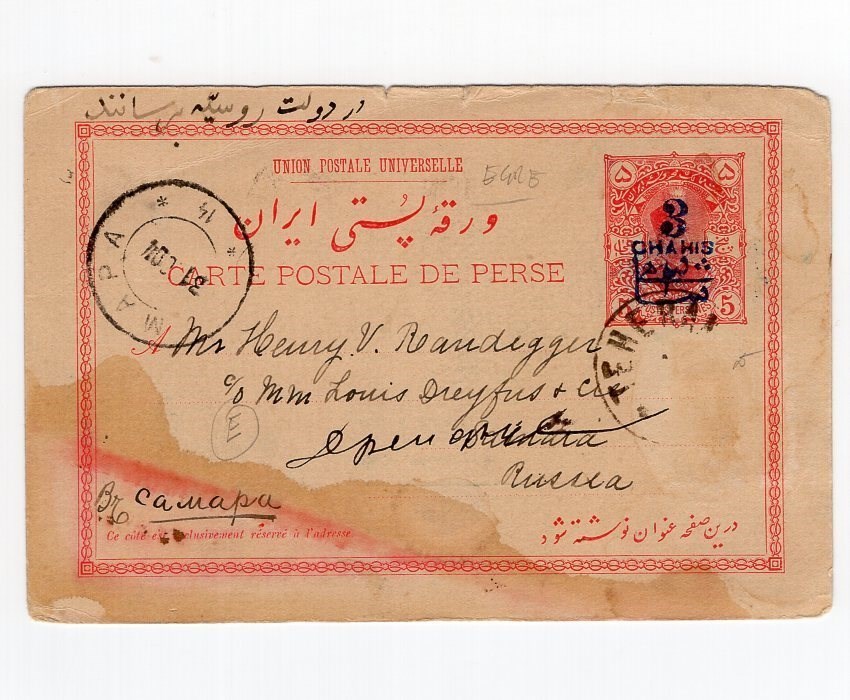 در دولت روسیه برسانند
UNION POSTALE UNIVERSELLE
ورقهٔ پُستی ایران
CARTE POSTALE DE PERSE
۵ ۵
3
CHAHIS
5
TEHERAN
МАРА
14
A Mr Henry V. Randegger
c/o MM Louis Dreyfus & Cie
Russia
E
Въ Самара
Ce côté est exclusivement réservé à l'adresse
درین صفحه عنوان نوشته شود